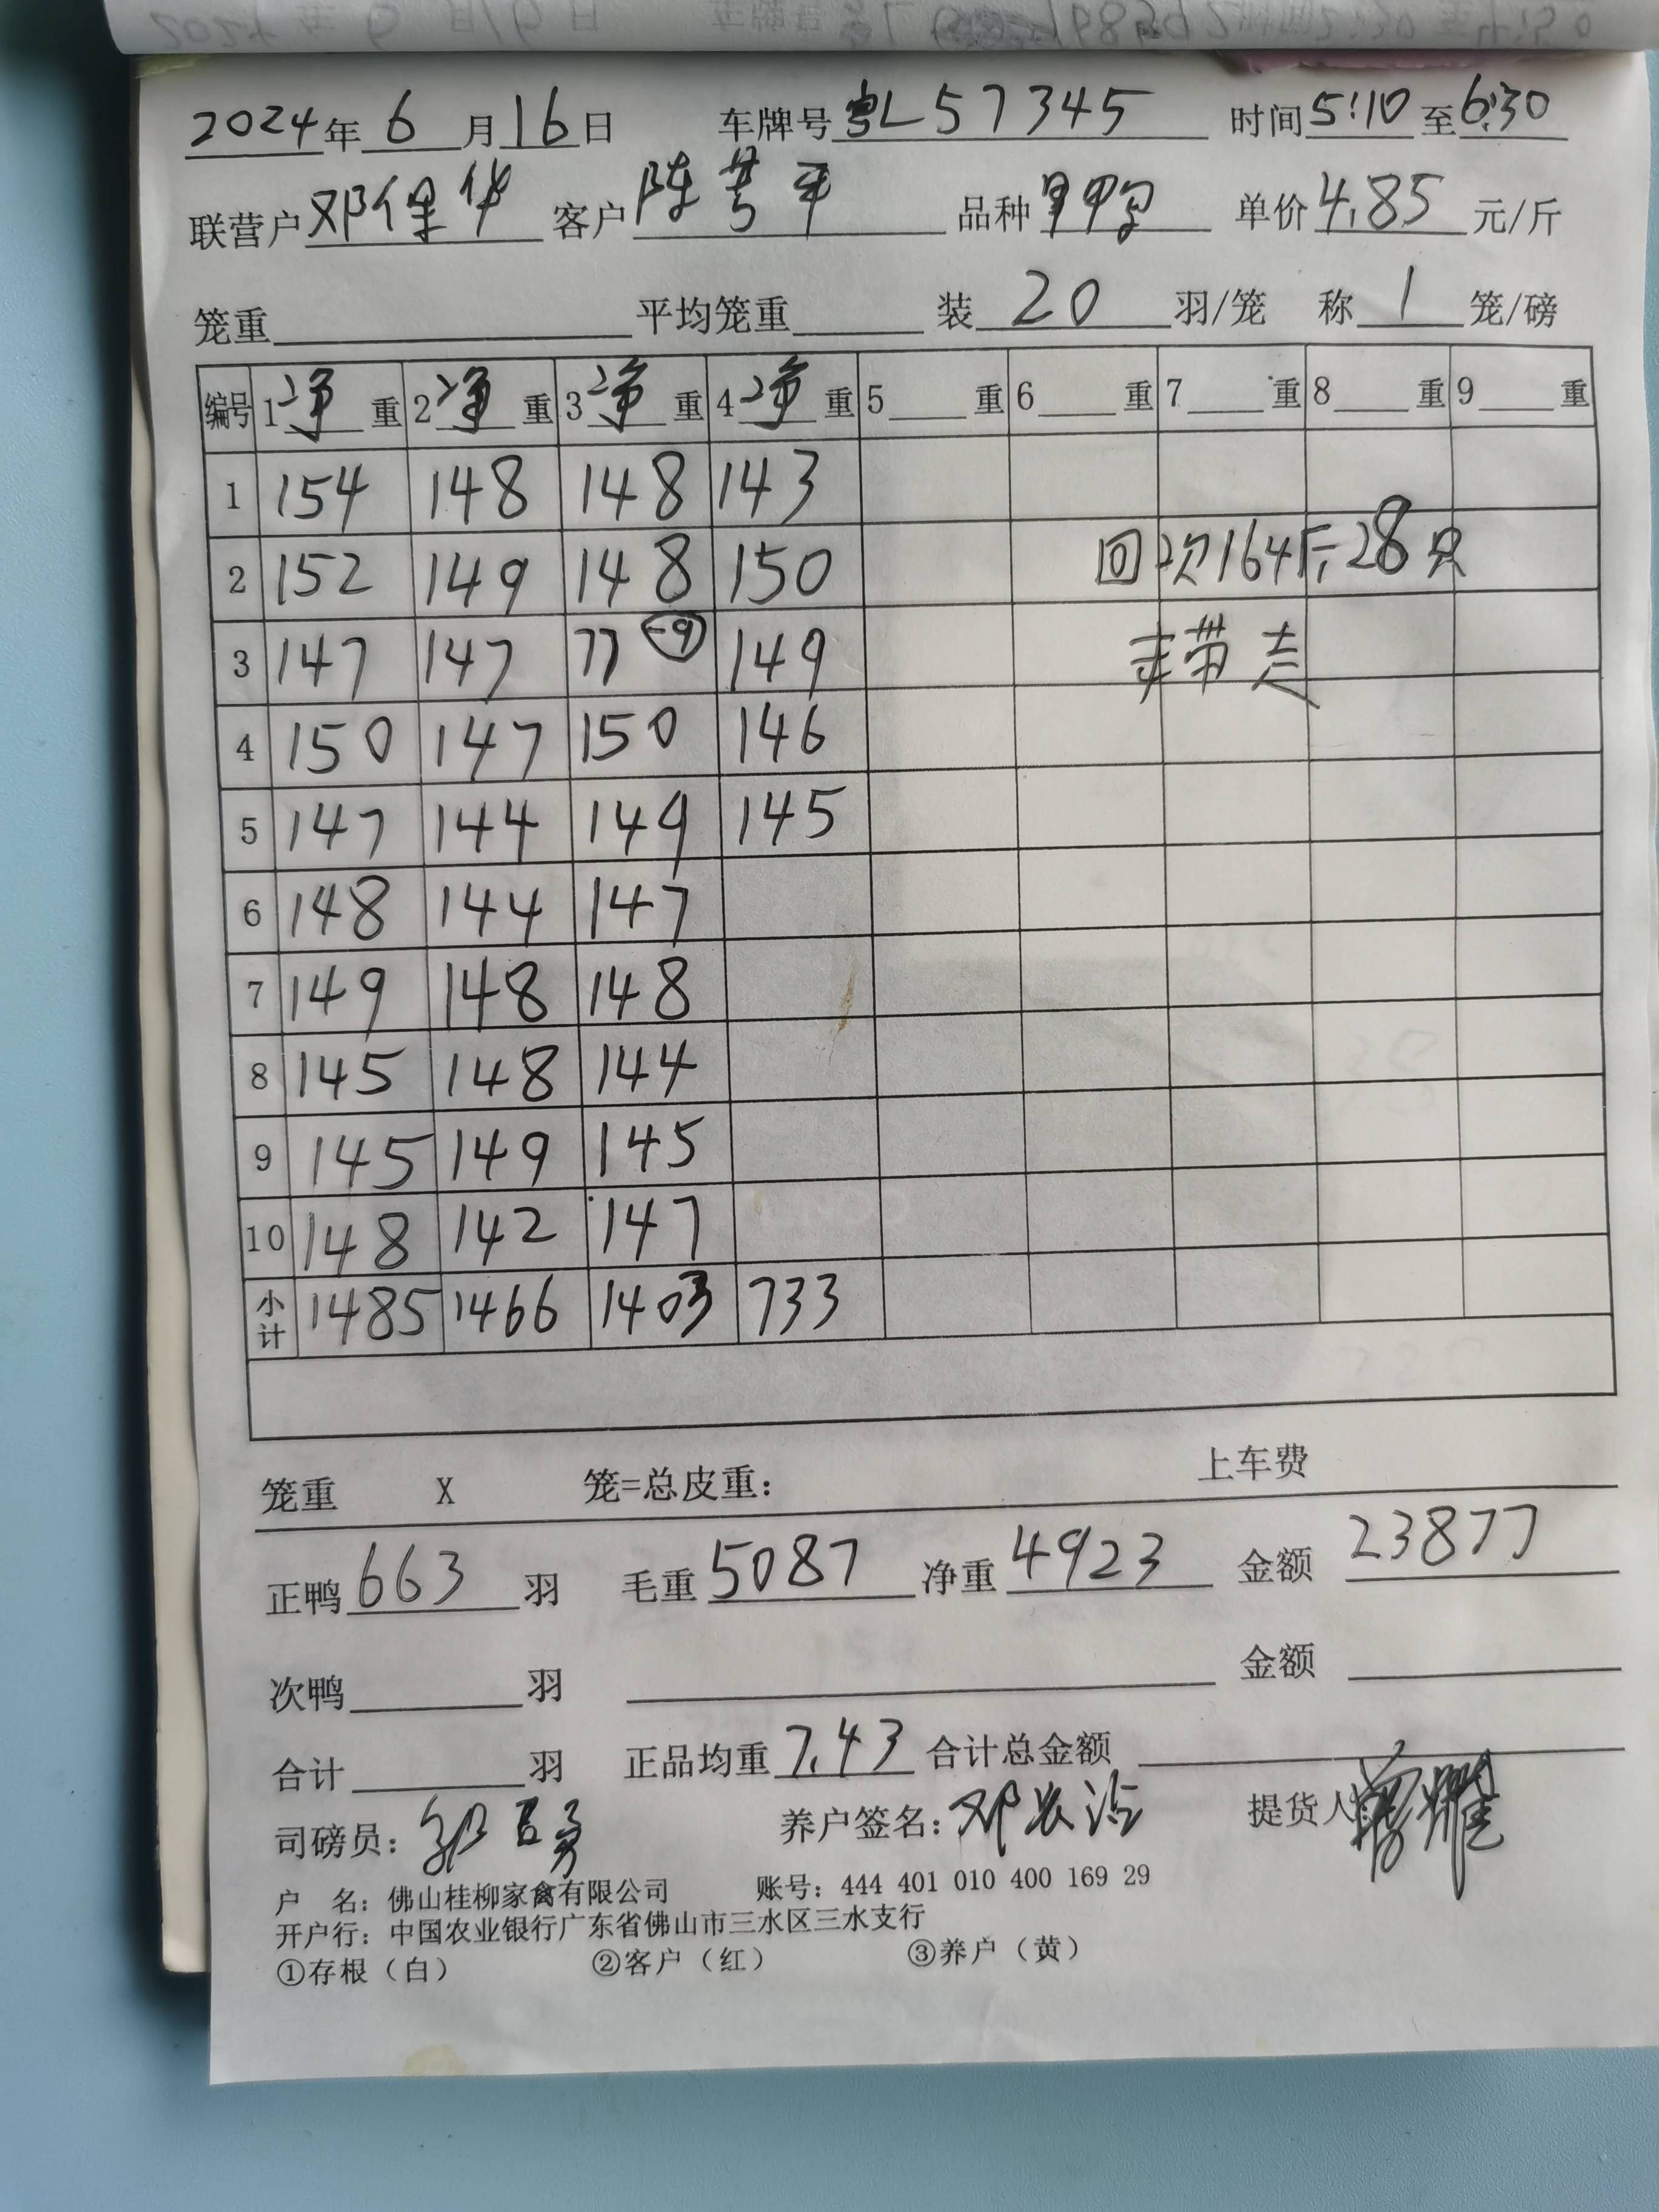 2024年6月16日 车牌号粤L57345 时间5:10至6:30
联营户邓保华 客户陈 平 品种 鸭 单价4.85元/斤
笼重 平均笼重 装20羽/笼 称1笼/磅
编号 1净重 2净重 3净重 4净重 5重 6重 7重 8重 9重
1 154 148 148 143
2 152 149 148 150 回次164斤,28只
3 147 147 77 -9 149 未带走
4 150 147 150 146
5 147 144 149 145
6 148 144 147
7 149 148 148
8 145 148 144
9 145 149 145
10 148 142 147
小计 1485 1466 1403 733
笼重 X 笼=总皮重: 上车费
正鸭663羽 毛重5087 净重4923 金额23877
次鸭 羽 金额
合计 羽 正品均重7.43 合计总金额
司磅员: 养户签名:邓 提货人
户 名: 佛山桂柳家禽有限公司 账号: 444 401 010 400 169 29
开户行: 中国农业银行广东省佛山市三水区三水支行
①存根(白) ②客户(红) ③养户(黄)